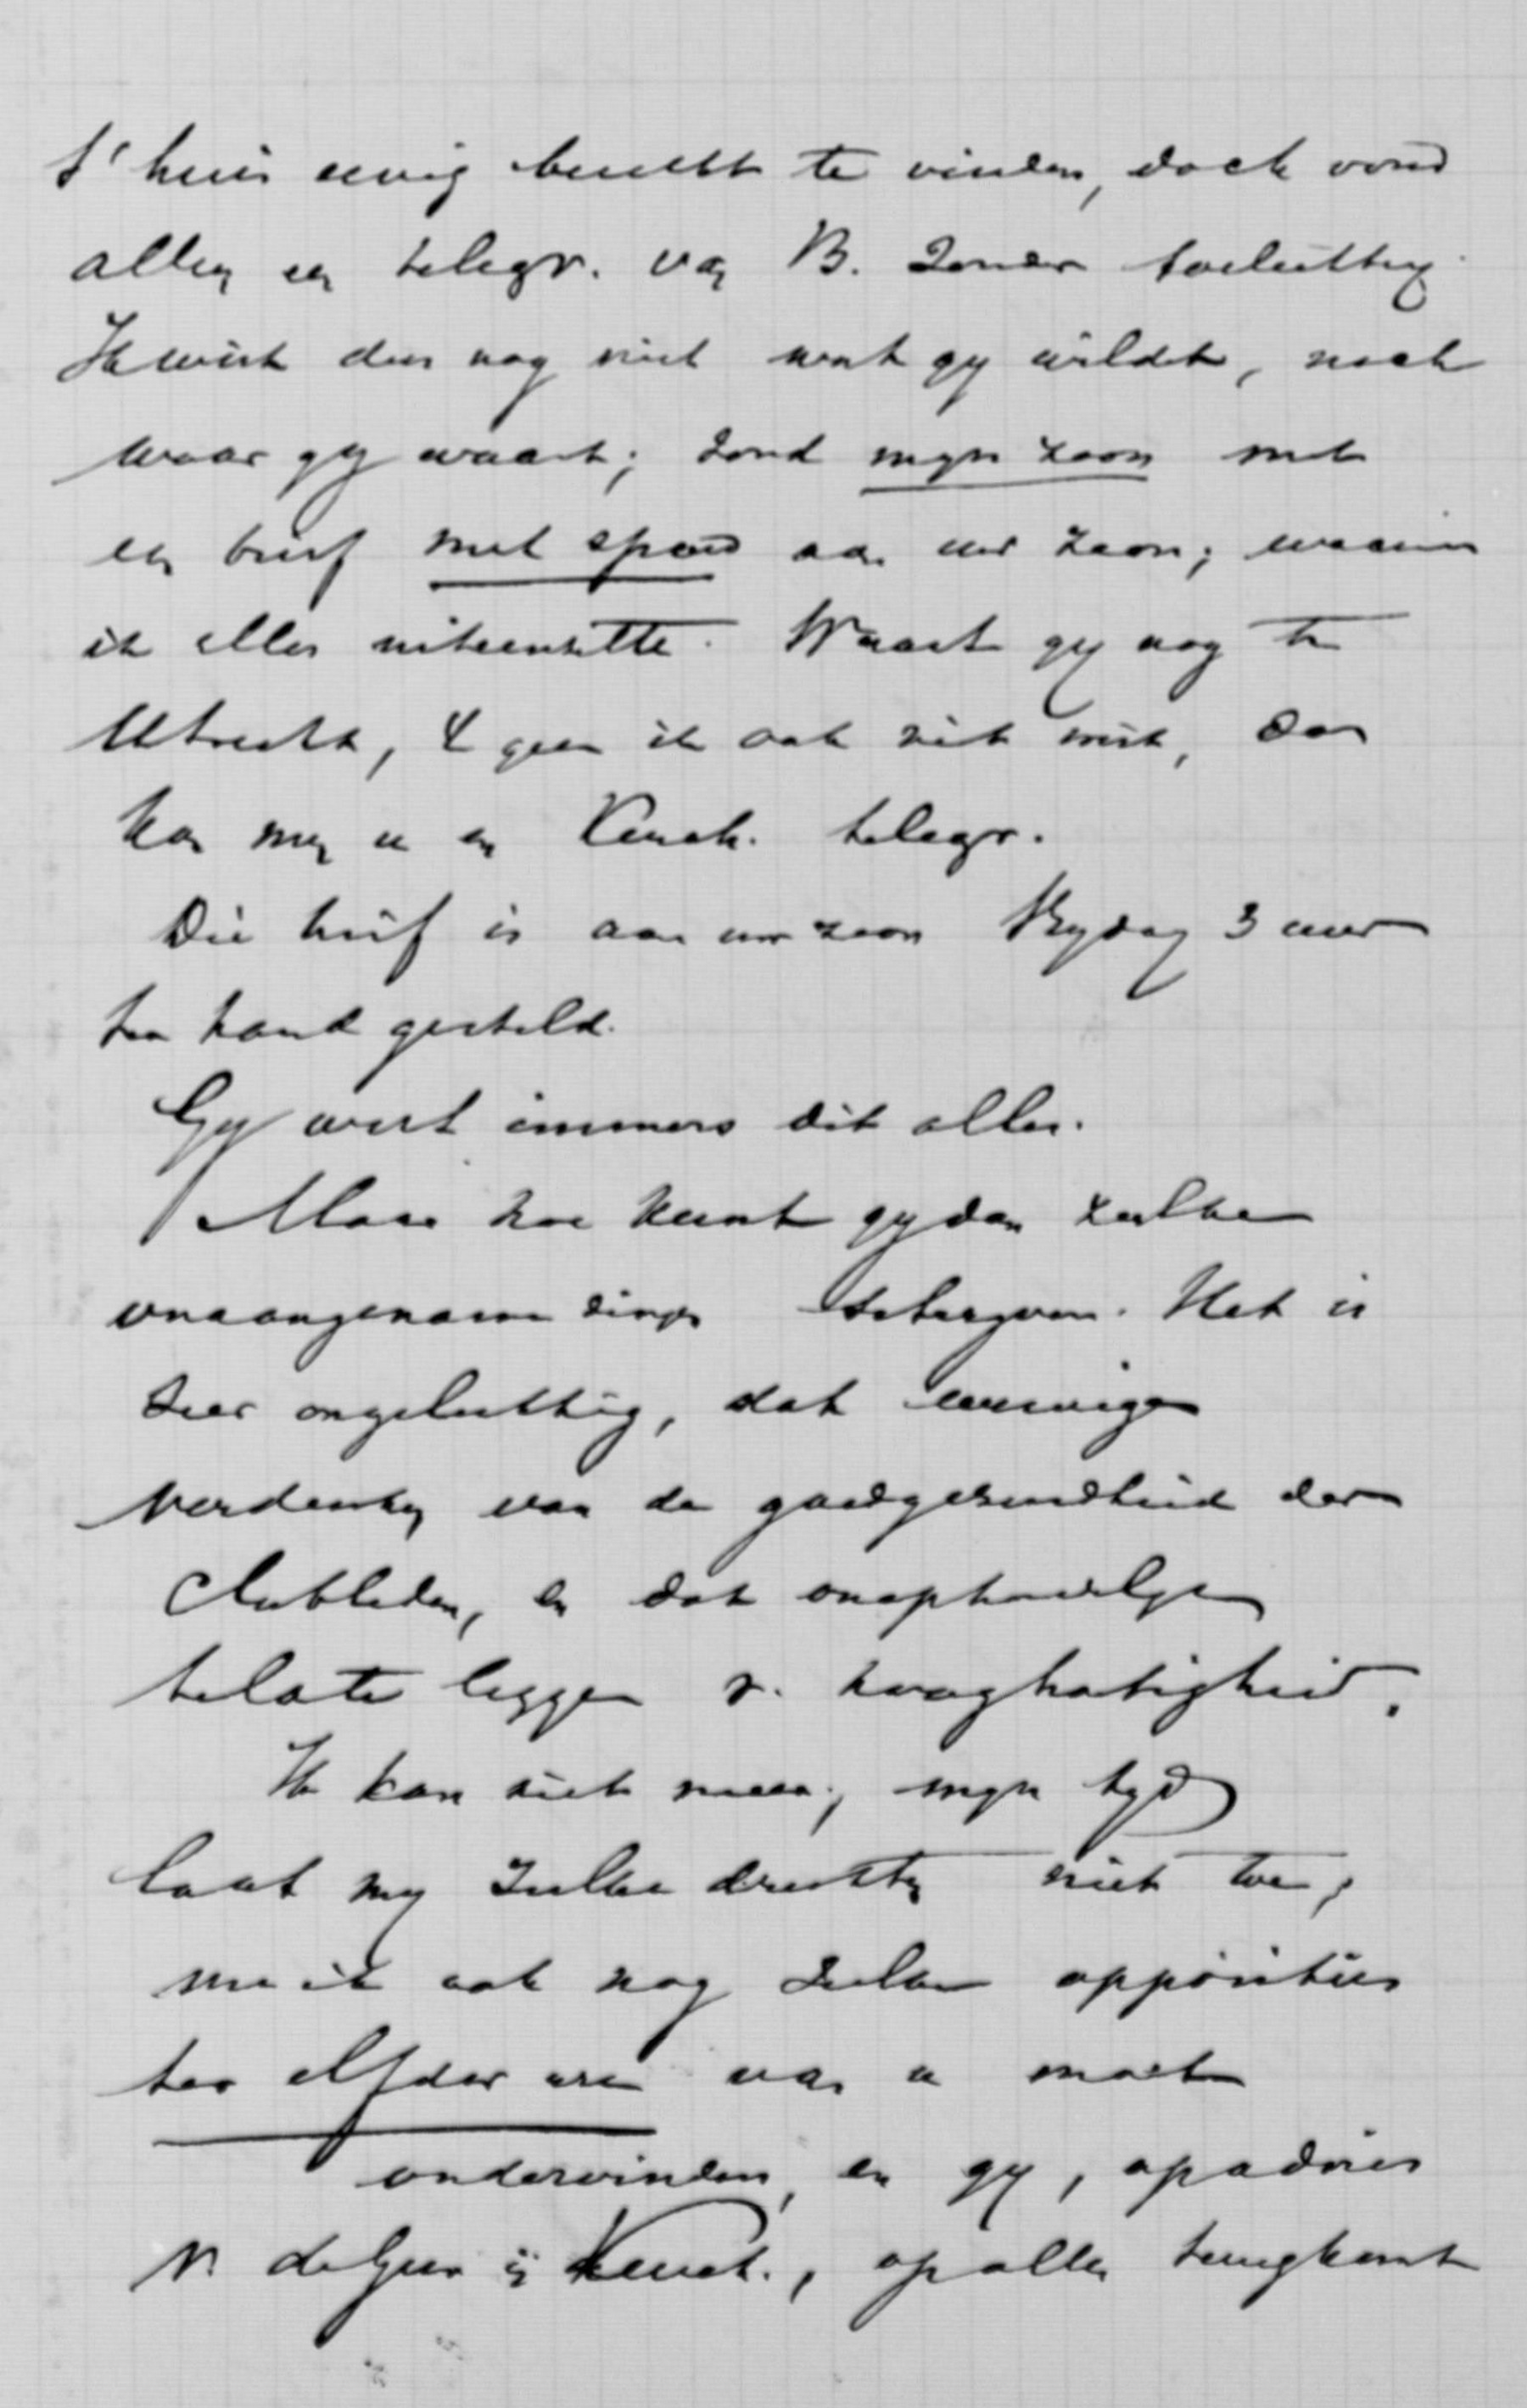 t'huis eenig bericht te vinden, doch vond
alleen een telegr. van B. zonder toelichting.
Ik wist dus nog niet wat gy wildet, noch
waar gy waart; zond myn zoon met
een brief met spoed aan uw zoon; waarin
ik alles uiteenzette. Waart gy nog te
Utrecht, & geen ik ook niet wist, dan
kon men u en Keuch. telegr.
Die brief is aan uw zoon Vrydag 3 uur
ter hand gesteld.
Gy wist immers dit alles.
Maar hoe kunt gy dan zulke
onaangename dingen schryven. Het is
zeer ongelukkig, dat eeuwige
verdenken van de goedgezindheid der
Clubleden, en dat onophoudelyk
te laste leggen v. kwaghartigheid.
Ik kan niet meer; myn tyd
laat my zulke drukte niet toe;
nu ik ook nog zulke oppositie
ter elfder ure van u moet
ondervinden, en gy, op advies
v. de heer Keuch., op alles terugkomt